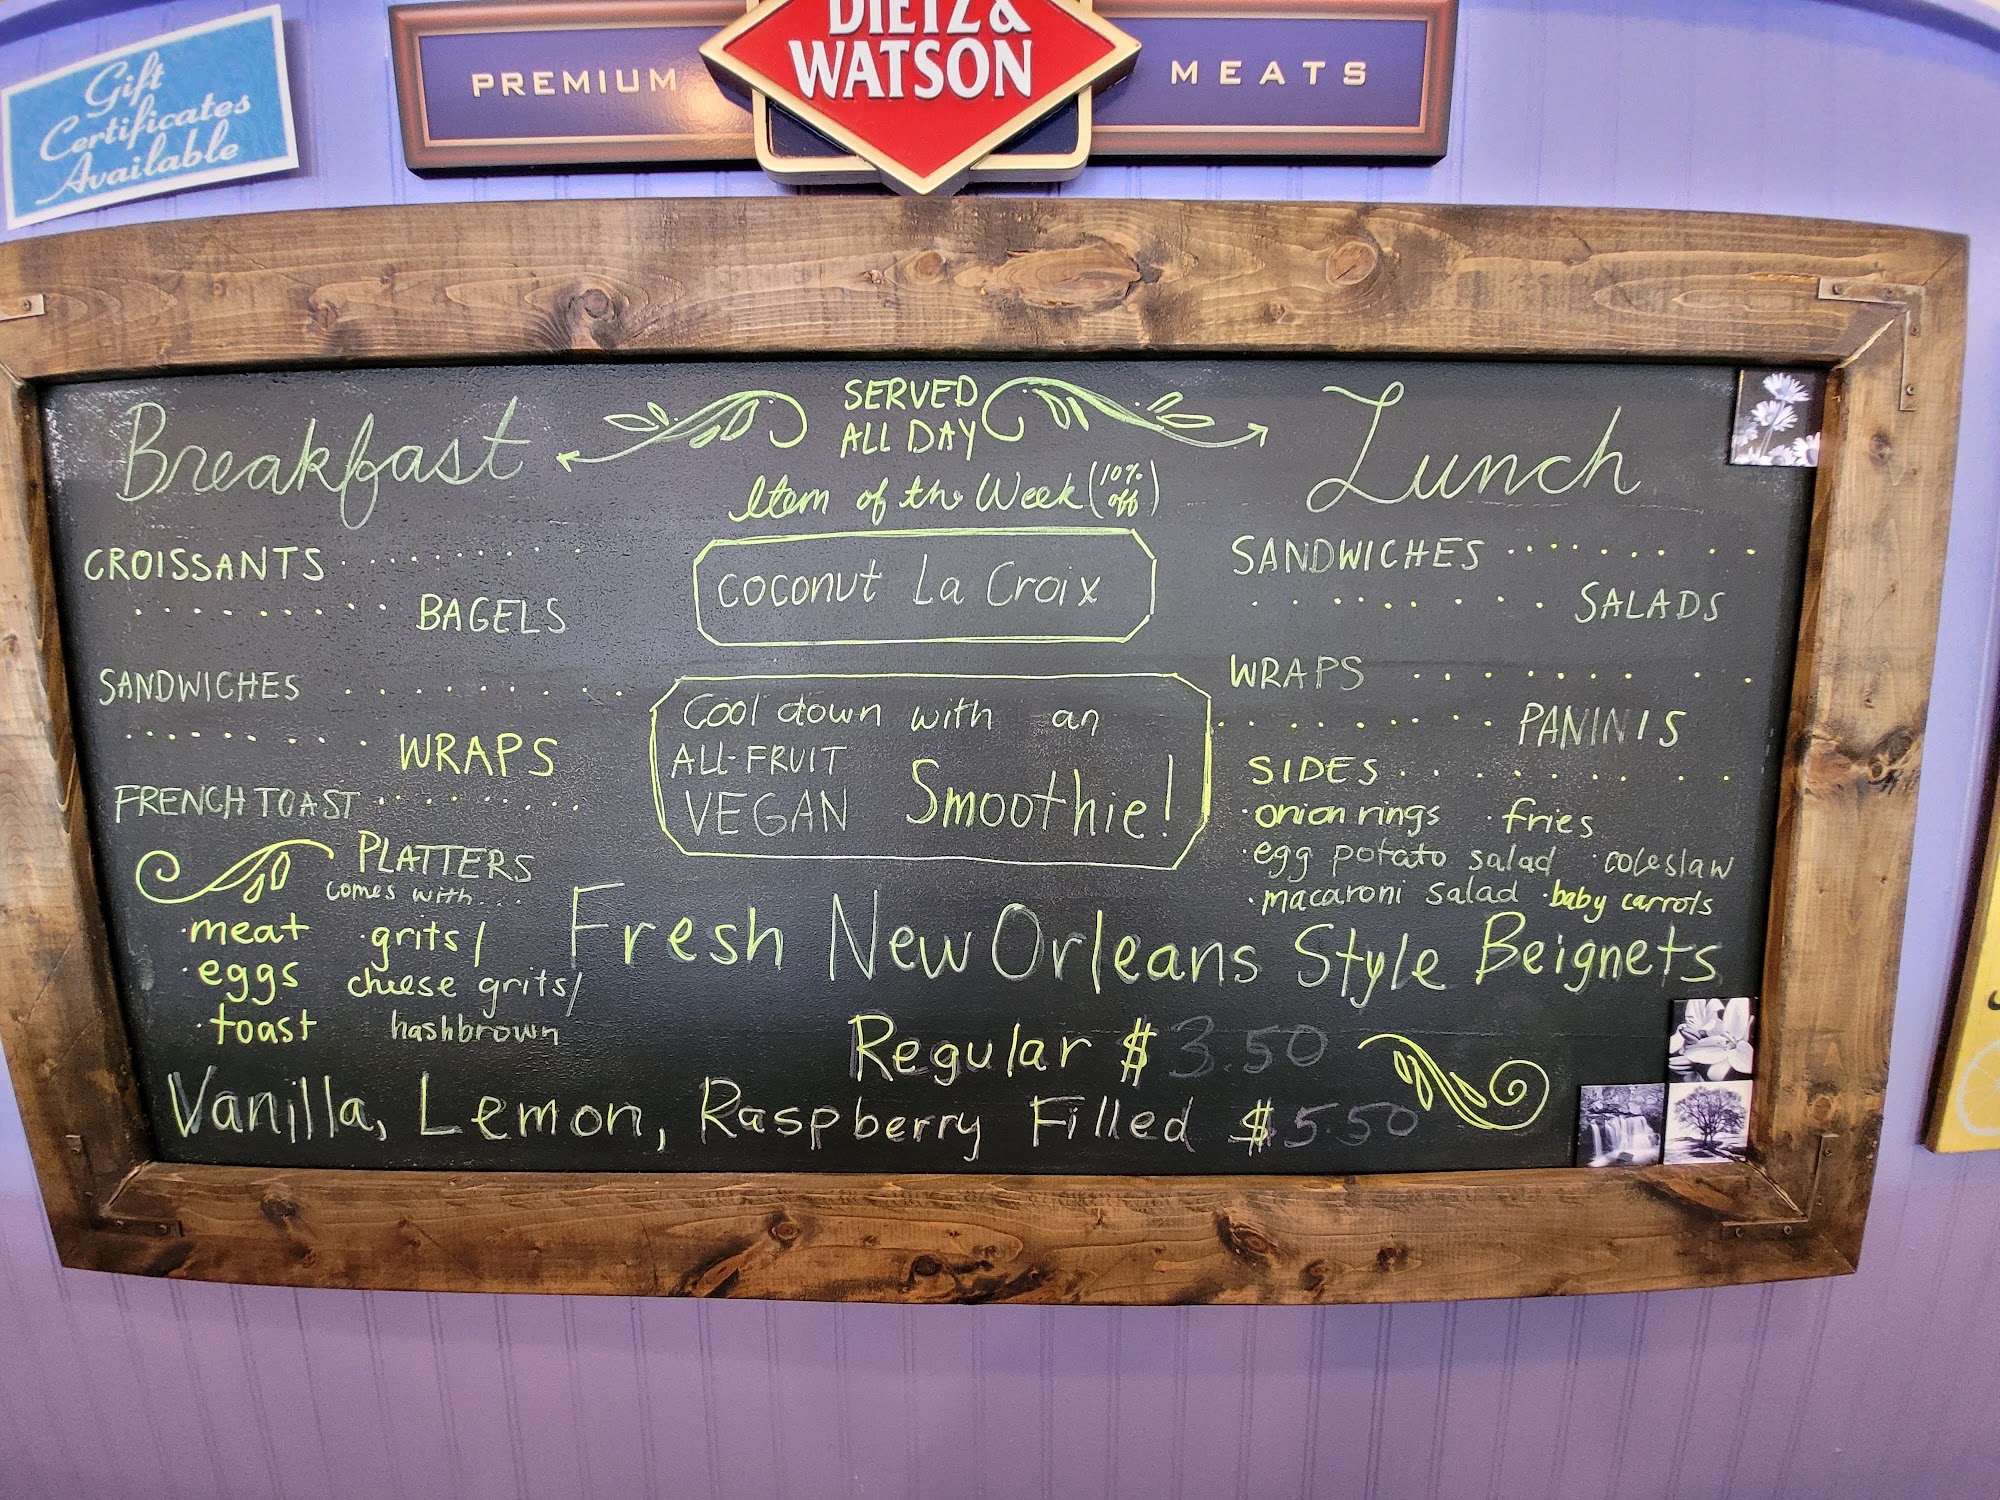 Gift
Certificates
Available
PREMIUM
DIETZ &
WATSON
MEATS
Breakfast
SERVED
ALL DAY
Lunch
Item of the Week (10% off)
Coconut La Croix
CROISSANTS . . . . . . . . .
. . . . . . . . . . BAGELS
SANDWICHES . . . . . . . . . .
. . . . . . . . . WRAPS
FRENCH TOAST . . . . . . . . .
PLATTERS
comes with...
·meat
·eggs
·toast
·grits/
cheese grits/
hashbrown
Cool down with an
ALL-FRUIT
VEGAN Smoothie!
SANDWICHES . . . . . . . . .
. . . . . . . . SALADS
WRAPS . . . . . . . . .
. . . . . . . . . PANINIS
SIDES . . . . . . . . .
·onion rings ·fries
·egg potato salad ·coleslaw
·macaroni salad ·baby carrots
Fresh New Orleans Style Beignets
Regular $3.50
Vanilla, Lemon, Raspberry Filled $5.50